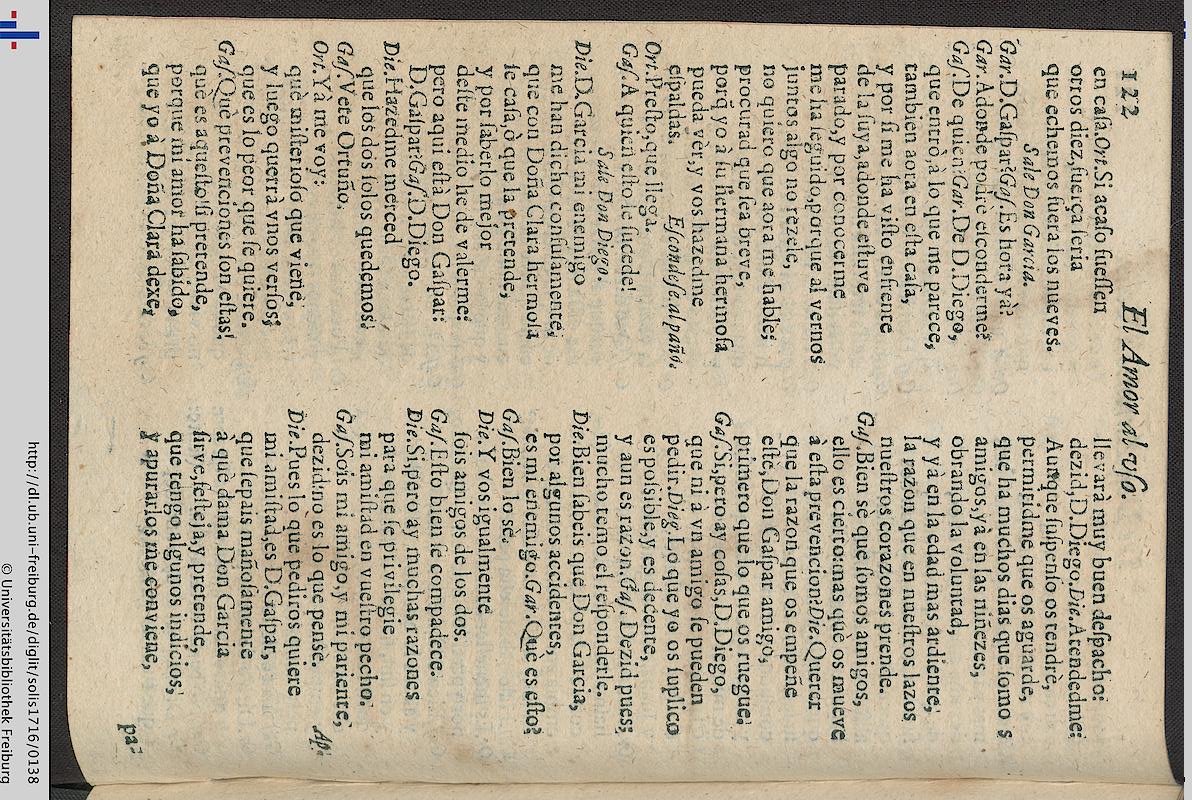 122
El Amor al vſo.
en caſa. Ort. Si acaſo fueſſen
otros diez, fuerça ſeria
que echemos fuera los nueves.
Sale Don Garcia.
Gar. D. Gaſpar? Gaſ. Es hora yà?
Gar. Adonde podrè eſconderme?
Gaſ. De quien? Gar. De D. Diego,
que entrò, à lo que me parece,
tambien aora en eſta caſa,
y por ſi me ha viſto enfrente
de la ſuya, adonde eſtuve
parado, y por conocerme
me ha ſeguido, porque al vernos
juntos algo no rezele,
no quiero que aora me hable;
procurad que ſea breve,
porq̃ yo à ſu hermana hermoſa
pueda vèr, y vos hazedme
eſpaldas. Eſcondeſe al paño.
Ort. Preſto, que llega.
Gaſ. A quien eſto le ſucede!
Sale Don Diego.
Die. D. Garcia mi enemigo
me han dicho confuſamente,
que con Doña Clara hermoſa
ſe caſa, ò que la pretende,
y por ſaberlo mejor
deſte medio he de valerme:
pero aqui eſta Don Gaſpar:
D. Gaſpar? Gaſ. D. Diego.
Die. Hazedme merced
que los dos ſolos quedemos.
Gaſ. Vete Ortuño.
Ort. Yà me voy:
què miſterioſo que viene,
y luego querrà vnos verſos;
que es lo peor que ſe quiere.
Gaſ. Què prevenciones ſon eſtas!
què es aqueſto? ſi pretende,
porque mi amor ha ſabido,
que yo à Doña Clara dexe,
llevarà muy buen deſpacho:
dezid, D. Diego. Die. Atendedme:
Aunque ſuſpenſo os tendrè,
permitidme que os aguarde,
que ha muchos dias que ſomos
amigos, yà en las niñezes,
obrando la voluntad,
y yà en la edad mas ardiente,
la razon que en nueſtros lazos
nueſtros corazones prende.
Gaſ. Bien sè que ſomos amigos,
ello es cierto: mas què os mueve
à eſta prevencion? Die. Querer
que la razon que os empeñe
eſtè, Don Gaſpar amigo,
primero que lo que os ruegue.
Gaſ. Si, pero ay coſas, D. Diego,
que ni à vn amigo ſe pueden
pedir. Dieg. Lo que yo os ſuplico
es poſsible, y es decente,
y aun es razon. Gaſ. Dezid pues;
mucho temo el reſponderle.
Die. Bien ſabeis que Don Garcia,
por algunos accidentes,
es mi enemigo. Gar. Què es eſto?
Gaſ. Bien lo sè.
Die. Y vos igualmente
ſois amigos de los dos.
Gaſ. Eſto bien ſe compadece.
Die. Si, pero ay muchas razones
para que ſe privilegie
mi amiſtad en vueſtro pecho.
Gaſ. Sois mi amigo, y mi pariente,
dezidno es lo que pensè. Ap.
Die. Pues lo que pediros quiere
mi amiſtad, es D. Gaſpar,
que ſepais mañoſamente
à què dama Don Garcia
ſirve, feſteja, y pretende,
que tengo algunos indicios,
y apurarlos me conviene,
pa-
http://dl.ub.uni-freiburg.de/diglit/solis1716/0138
© Universitätsbibliothek Freiburg